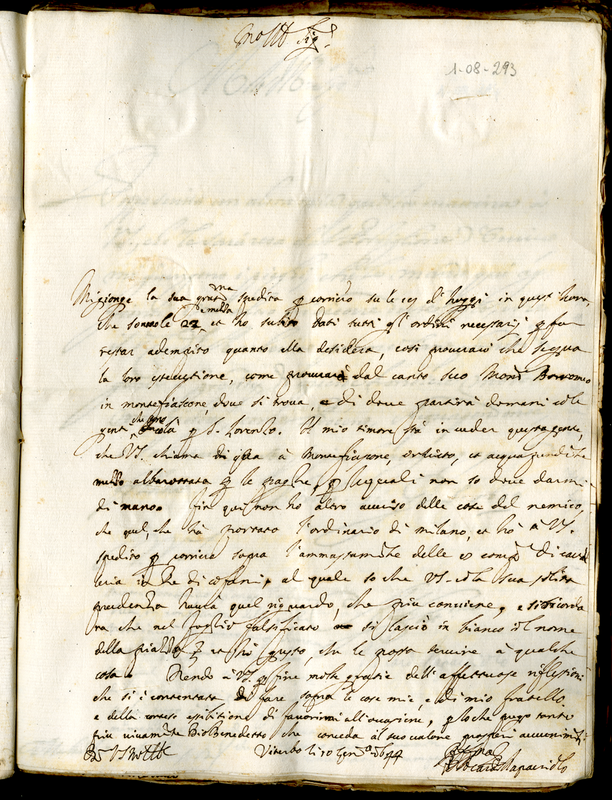 Moltt Sig.r
1-08-293
Mi gionge la sua gratma spedita p corriero su le 19 d'hoggi in quest'hora
che sono le 22 et ho subito dati tutti gl'ordini necessarij p far
restar adempito quanto ella desidera, così procurarò che segua
la loro essecutione, come procurarà dal canto suo Mons.r Borromeo
in montefiascone, dove si trova, e di dove partirà domani colla
gente che sono colà p S. Lorenzo. Il mio timore stà in veder questa gente,
che VS. chiama di qua à Montefiascone, orvieto, et acquapendente
molto abbarattata p le paghe, p le quali non so dove darmi
di mano. fin qui non ho altro avviso delle cose del nemico,
che quel, che hà portato l'ordinario di milano, et hò à VS.
spedito p corriero sopra l'ammassamto delle comp.e di caval
leria al quale so che VS. colla sua solita
prudenza haverà quel riguardo, che più conviene, e si ricorda
rà che nel foglio falsificato si lasciò in bianco il nome
della piazza, et hò gusto, che le possa servire à qualche
cosa. Rendo à VS. p fine molte gratie dell'affettuose riflessioni
che si è contentata di fare sopra le cose mie, e di mio fratello
e della cortese esibitione di favorirmi all'occasione, p lo che prego tanto
più vivamte Dio Benedetto che conceda al suo valore prosperi avvenimti
Di VS Moltt Viterbo li 10 1644